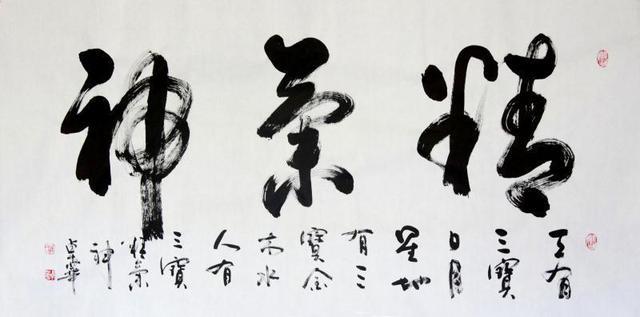 精氣神
天有
三寶
日月
星地
有三
寶金
木水
人有
三寶
精氣
神